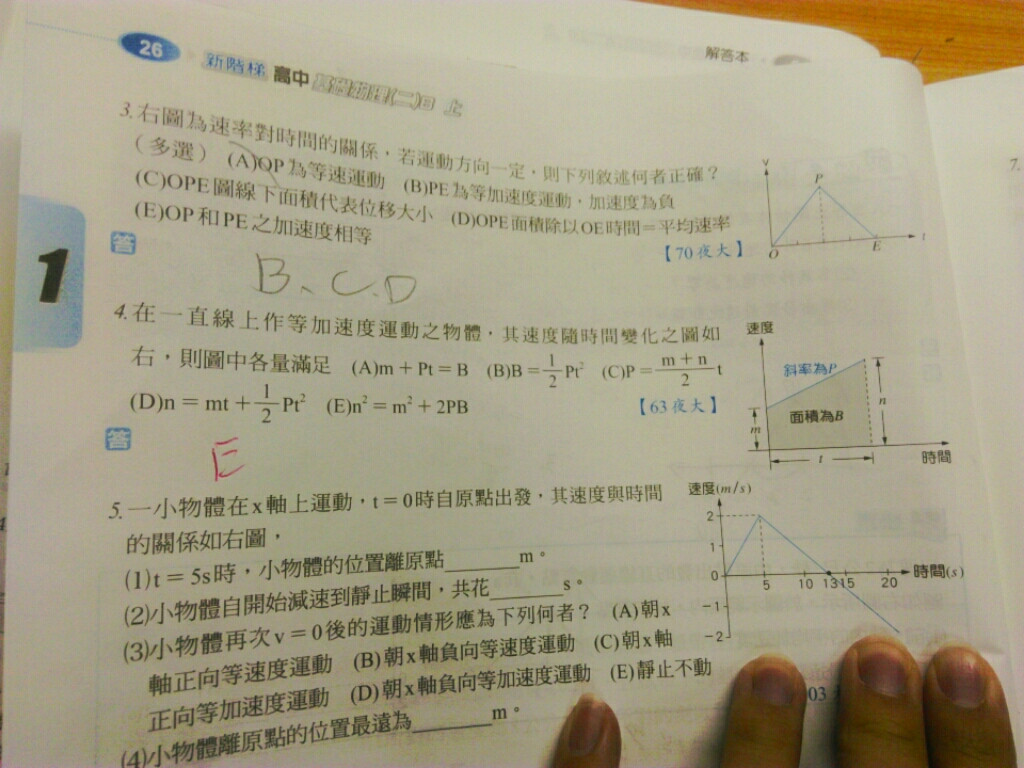 26
新階梯 高中 基礎物理(二)B 上
解答本
3.右圖為速率對時間的關係，若運動方向一定，則下列敘述何者正確？
（多選） (A)OP為等速運動 (B)PE為等加速度運動，加速度為負
(C)OPE圖線下面積代表位移大小 (D)OPE面積除以OE時間＝平均速率
(E)OP和PE之加速度相等
【70夜大】
v
P
O
E
t
答
B、C.D
1
4.在一直線上作等加速度運動之物體，其速度隨時間變化之圖如
右，則圖中各量滿足 (A)m + Pt = B (B)B = 1/2 Pt² (C)P = (m + n)/2 t
(D)n = mt + 1/2 Pt² (E)n² = m² + 2PB
【63夜大】
速度
斜率為P
面積為B
m
n
t
時間
答
E
5.一小物體在x軸上運動，t = 0時自原點出發，其速度與時間
的關係如右圖，
(1)t = 5s時，小物體的位置離原點________m。
(2)小物體自開始減速到靜止瞬間，共花________s。
(3)小物體再次v = 0後的運動情形應為下列何者？ (A)朝x
軸正向等速度運動 (B)朝x軸負向等速度運動 (C)朝x軸
正向等加速度運動 (D)朝x軸負向等加速度運動 (E)靜止不動
(4)小物體離原點的位置最遠為________m。
速度(m/s)
2
1
0
5 10 1315 20
時間(s)
−1
−2
03
7.